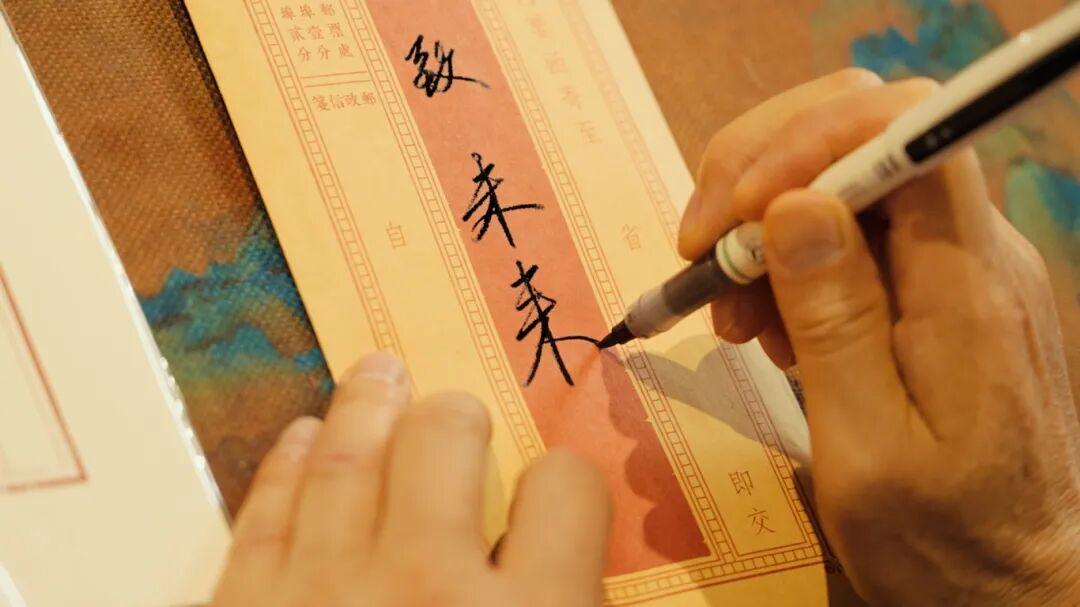 函寄至
省
即交
致未来
郵票處
埠壹分
埠貳分
郵政信箋
自